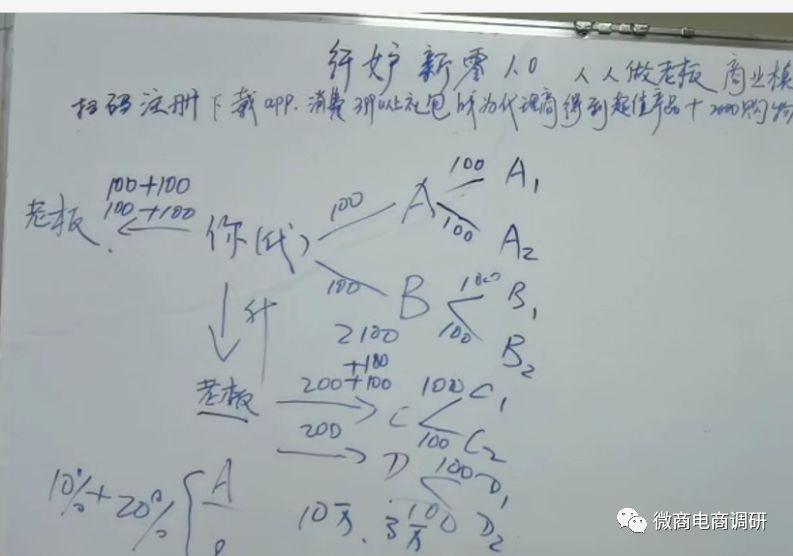 纤妒新零1.0 人人做老板 商业模
扫码注册下载app.消费399以上礼包成为代理商得到超值产品+2000购物
100+100
100+100
老板 你(代)
100 A 100 A1
100 A2
100 B 100 B1
100 B2
升
2100
+100
老板 200+100 C 100 C1
100 C2
200 D 100 D1
100 D2
10%+20% A
10万、3万
微商电商调研